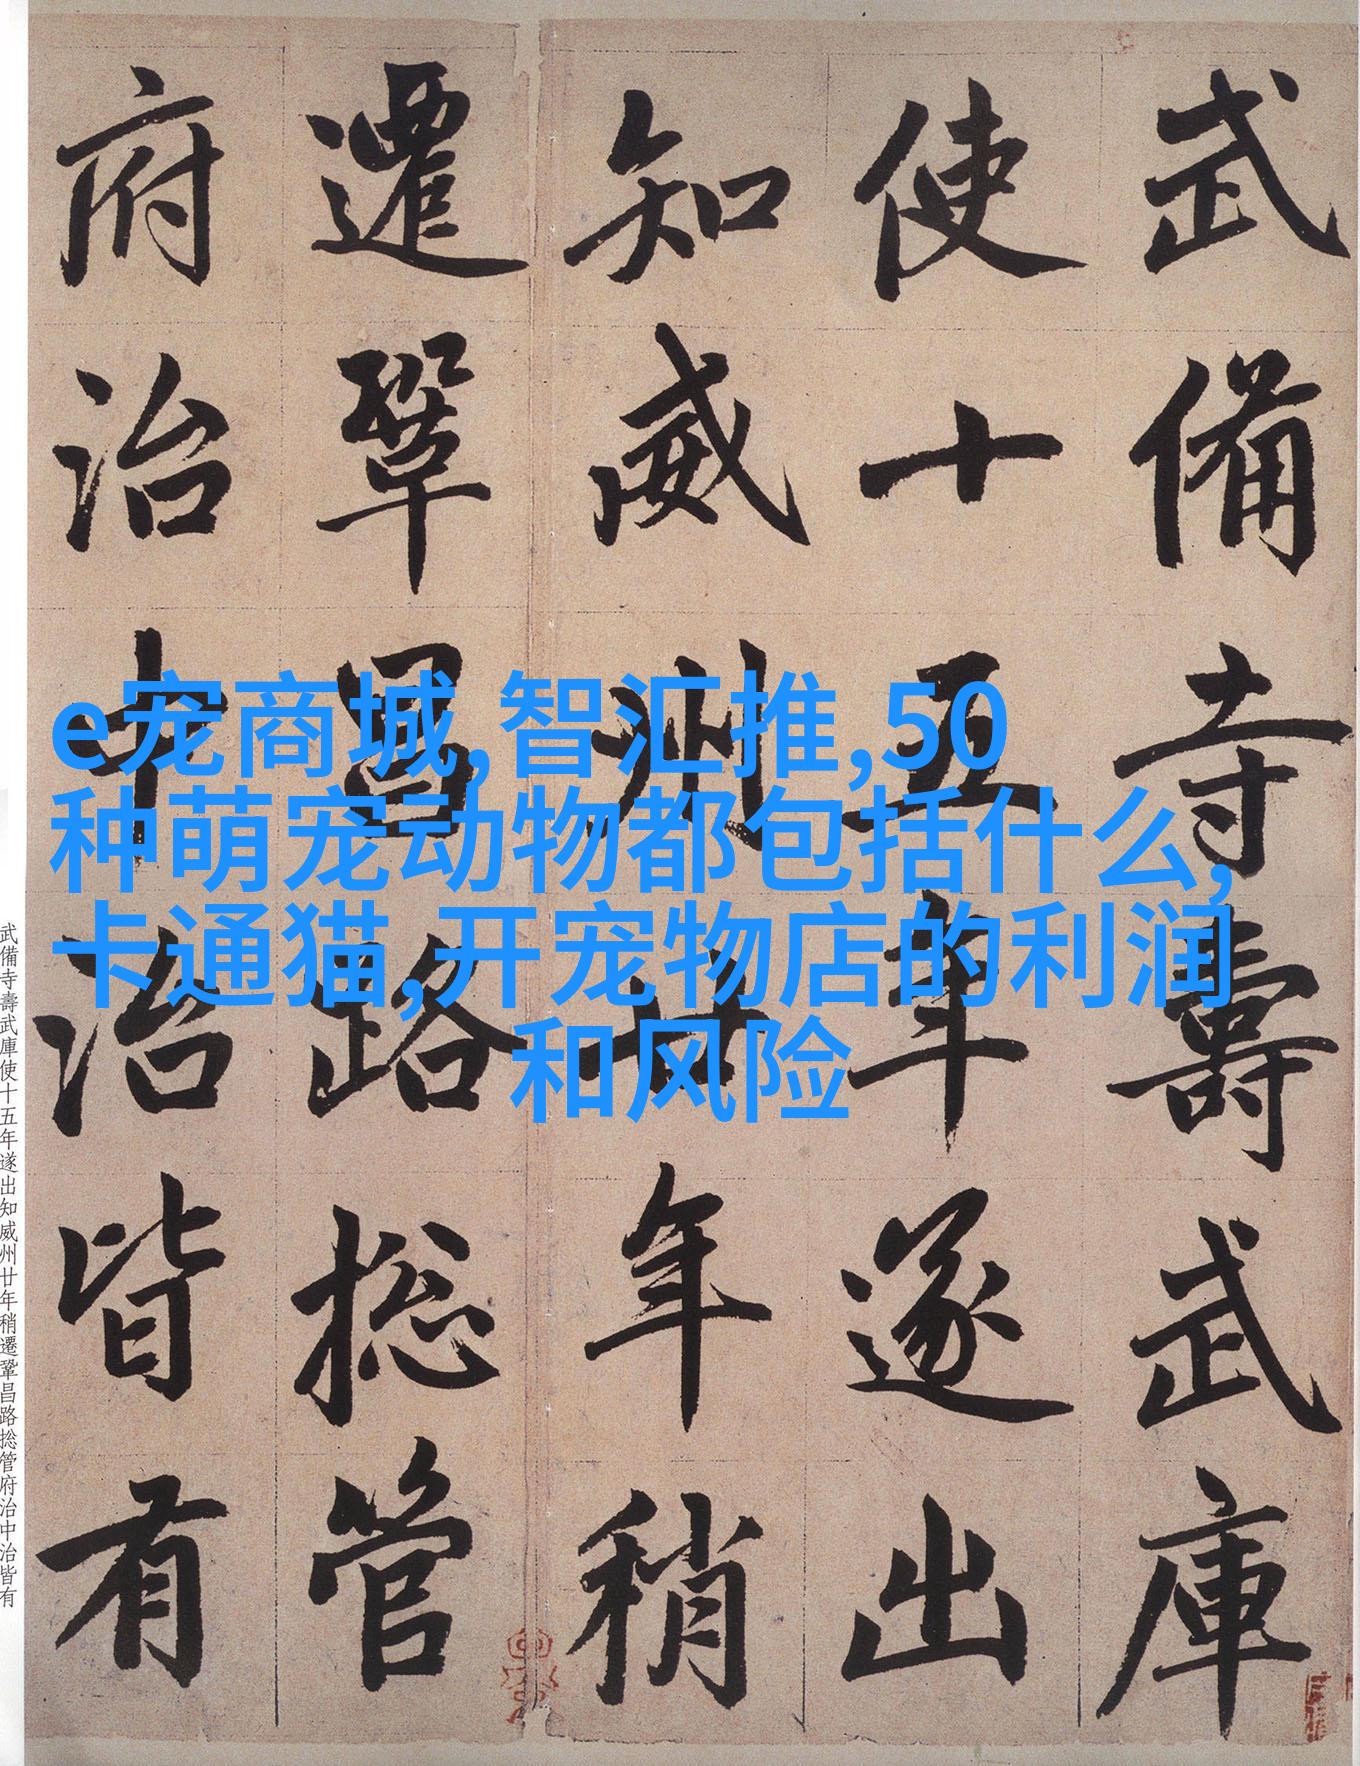 武備寺壽武庫
使十五年遂出
知威州廿年稍
遷鞏昌路捴管
府治中治皆有
e宠商城,智汇推,50
种萌宠动物都包括什么,
卡通猫,开宠物店的利润
和风险
武備寺壽武庫使十五年遂出知威州廿年稍遷鞏昌路捴管府治中治皆有